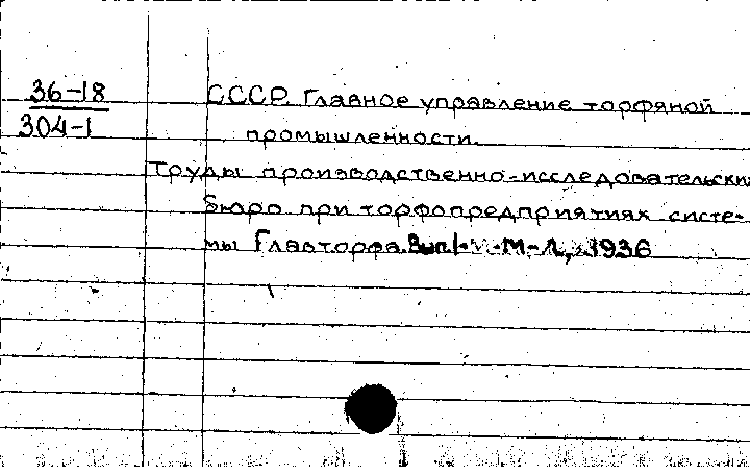 36-18
304-1
СССР. Главное управление торфяной
промышленности.
Труды производственно-исследовательски
бюро при торфопредприятиях систе-
мы Главторфа. Вып. I- М-Л, 1936